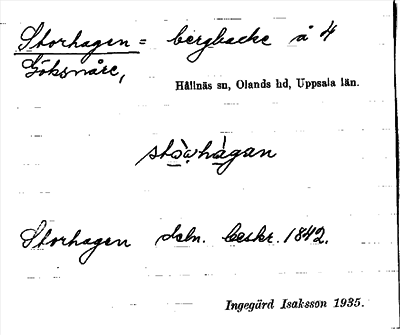 Storhagen = bergbacke å 4
Göksnåre,
Hållnäs sn, Olands hd, Uppsala län.
stòrhàgan
Storhagen deln. beskr. 1842.
Ingegärd Isaksson 1935.